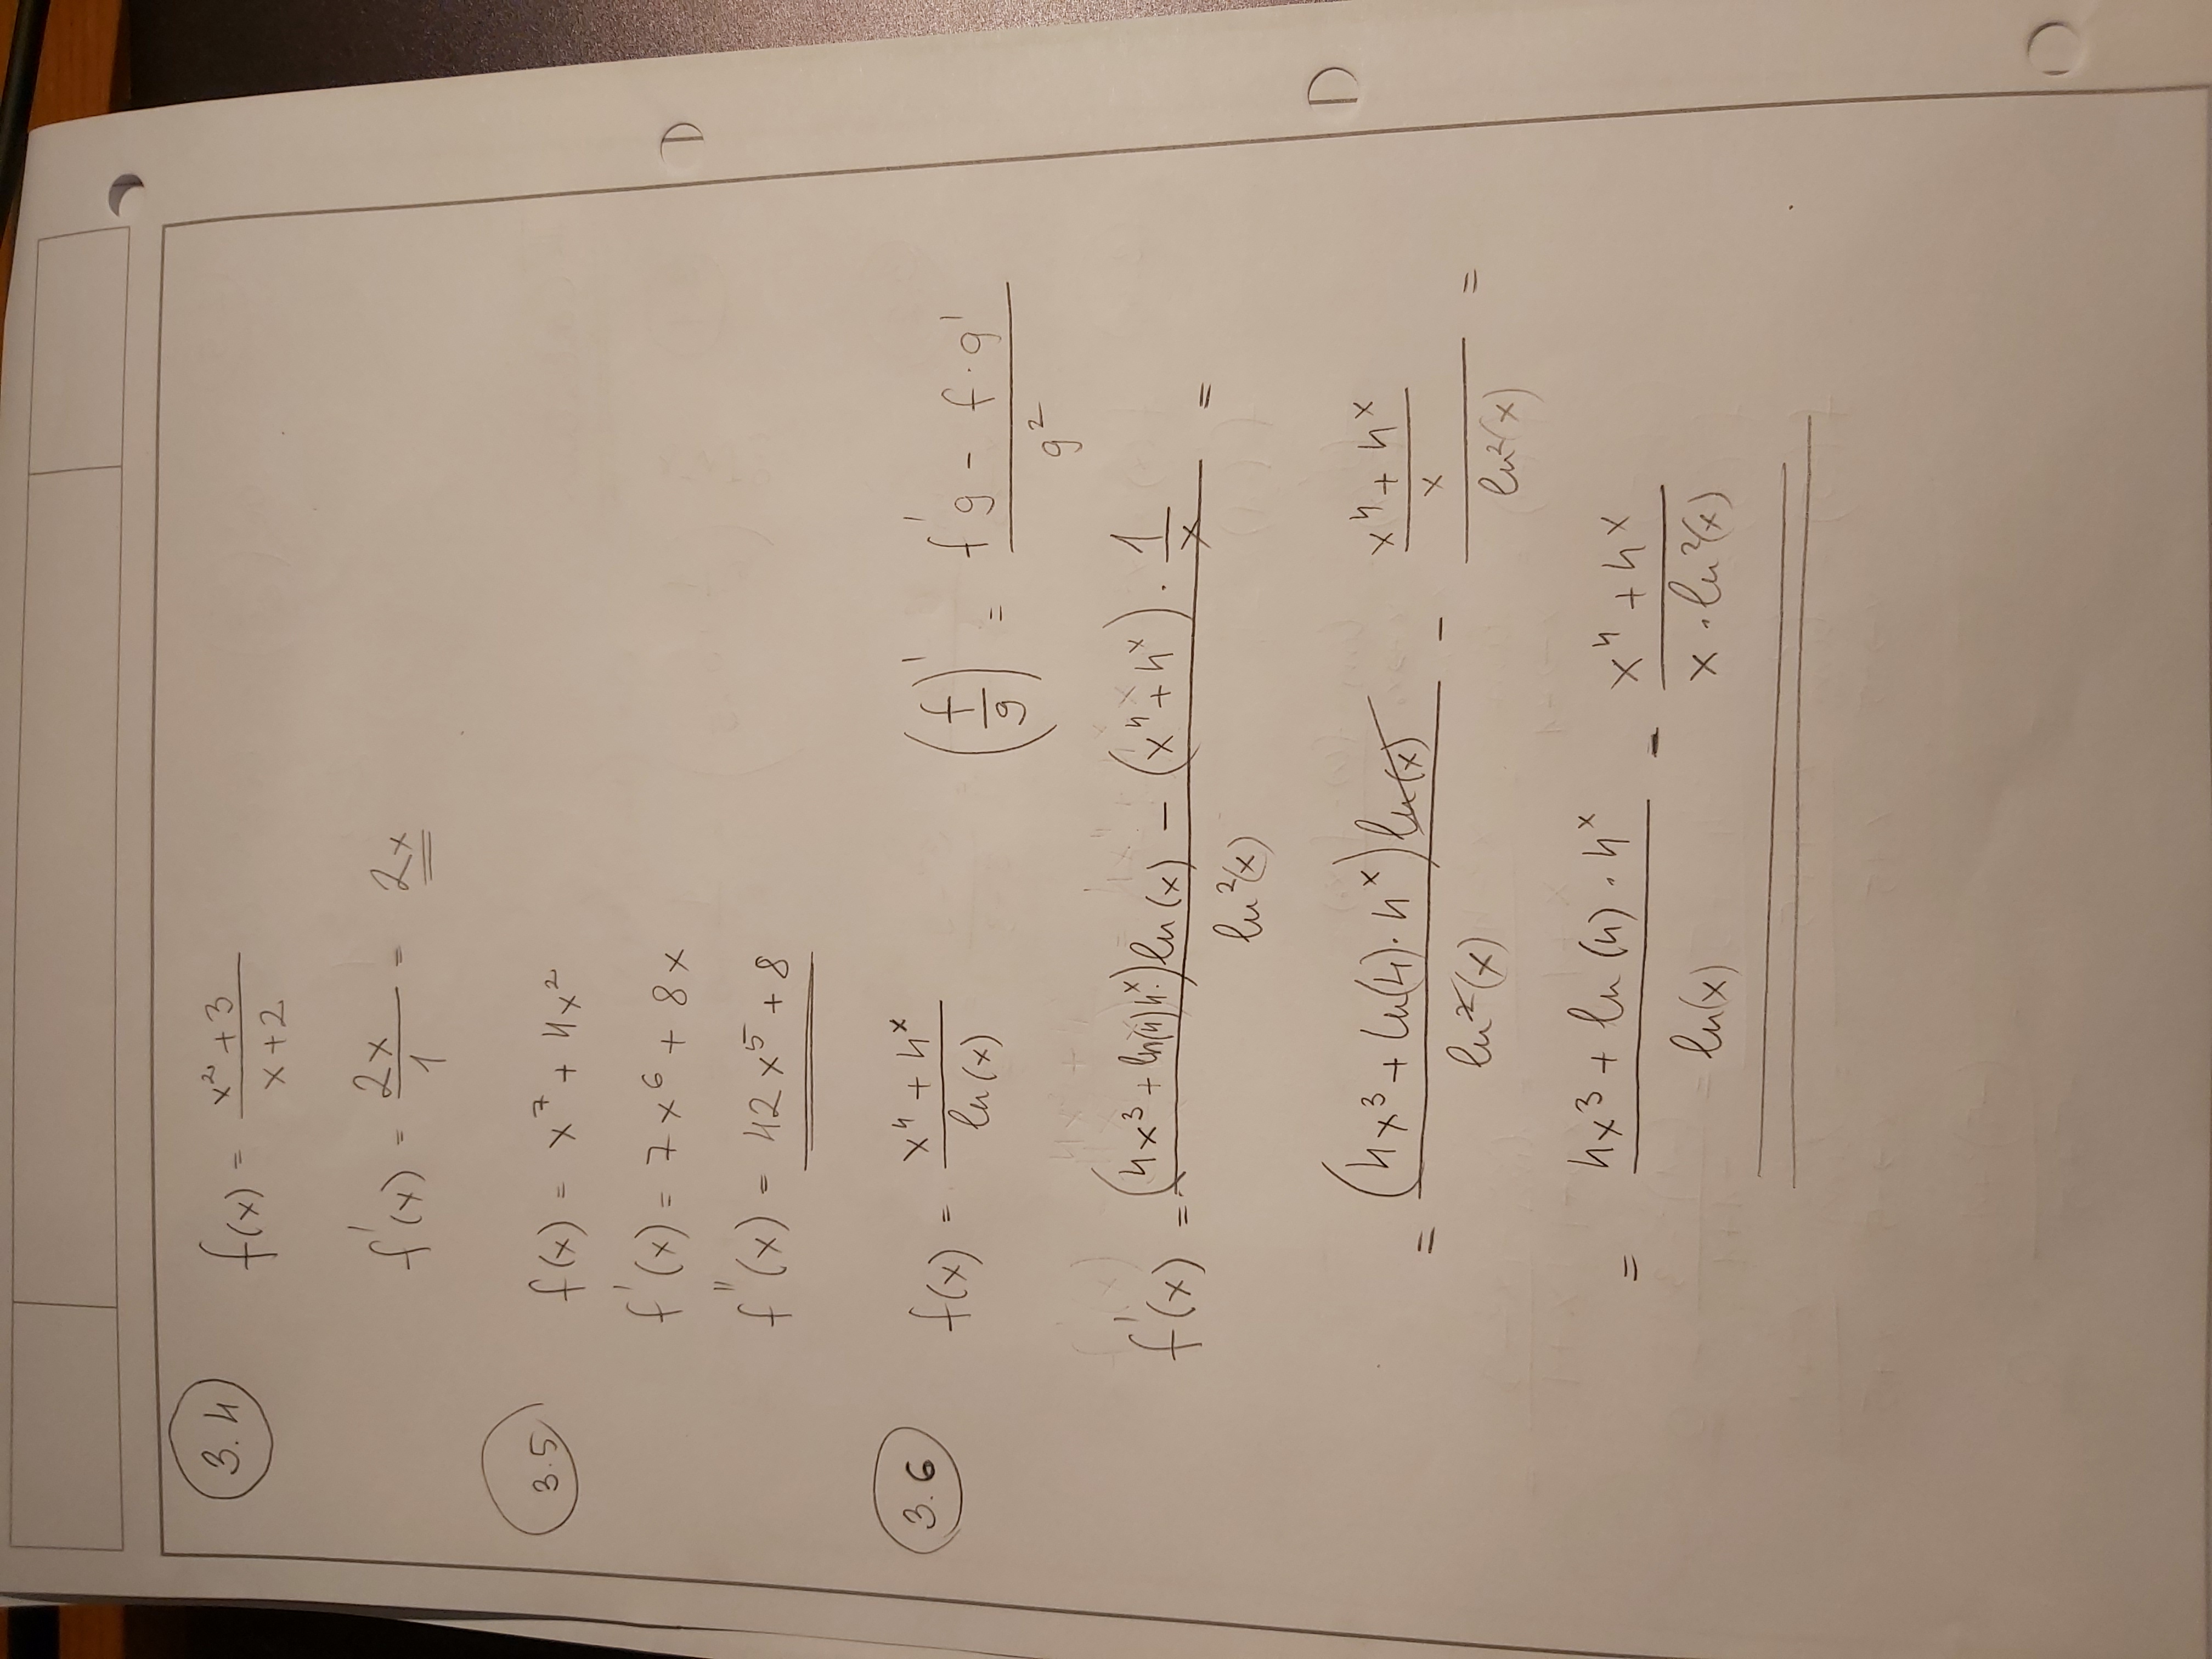 3.4 f(x) = (x² + 3)/(x + 2)
f'(x) = 2x/1 = 2x
3.5 f(x) = x⁷ + 4x²
f'(x) = 7x⁶ + 8x
f''(x) = 42x⁵ + 8
3.6 f(x) = (x⁴ + 4ˣ)/ln(x) (f/g)' = (f'g - f·g')/g²
f'(x) = ((4x³ + ln(4)4ˣ)ln(x) - (x⁴ + 4ˣ)·1/x)/ln²(x) =
= ((4x³ + ln(4)·4ˣ)ln(x))/ln²(x) - ((x⁴ + 4ˣ)/x)/ln²(x) =
= (4x³ + ln(4)·4ˣ)/ln(x) - (x⁴ + 4ˣ)/(x·ln²(x))